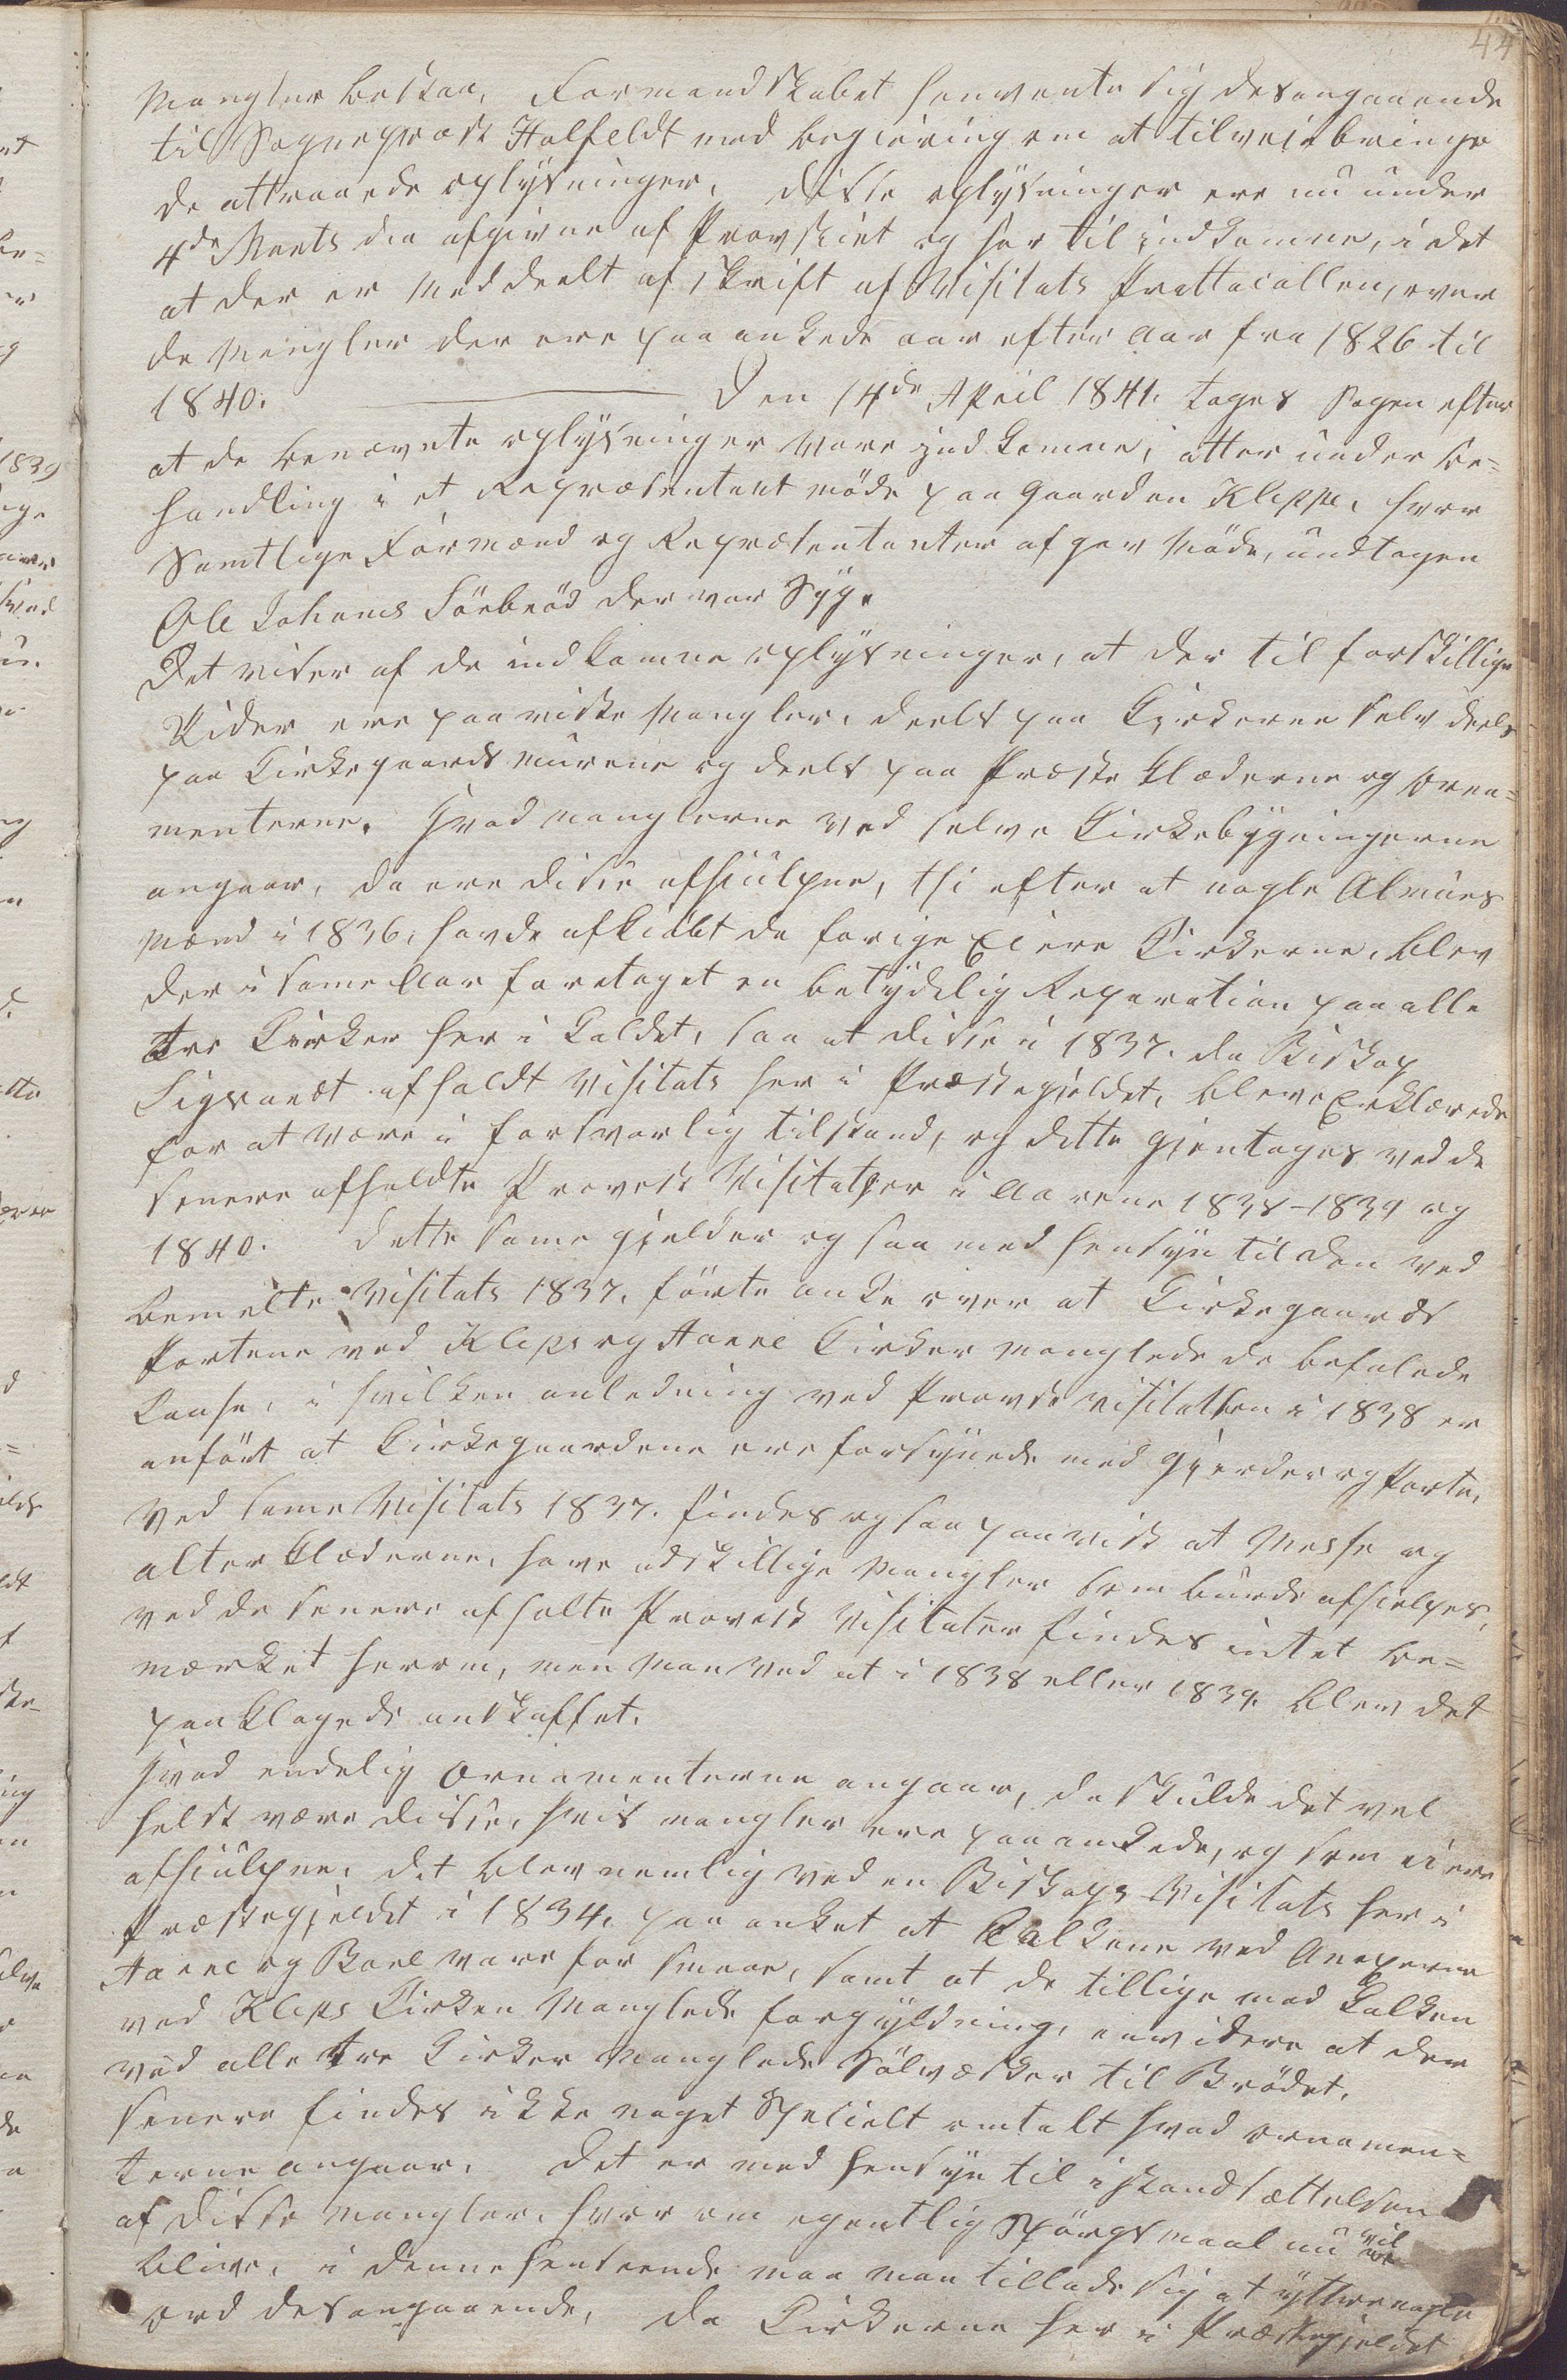 44
Mangler bestaar, Formandskabet henvente sig desangaaende
til Sognepræst Halfeldt med begjæring om at tilveiebringe
de attraaede oplysninger, disse oplysninger ere nu under
4de Marts dia afgivne af Provstiet og her til indkomne, i det
at der er Meddeelt afskrift af Visitats Prottocollen, over
de Mangler der ere paaankede aar efter Aar fra 1826 til
1840. Den 14de April 1841. tages Sagen efter
at de benævnte oplysninger Vare indkomne, atter under be=
handling i et Repræsentant møde paa Gaarden Kleppe, hvor
Samtlige Formænd og Repræsentanter afgav Møde, undtagen
Ole Johans Sörbröd der var Syg.
Det viser af de indkomne oplysninger, at der til forskillige
Tider ere paaviste Mangler, deels paa Kirkerne selv deels
paa Kirkegaards murene og deels paa Præste klæderne og Orna=
menterne. Hvad manglerne ved selve Kirkebygningerne
angaar, da ere disse afhiulpne, thi efter at nogle Almues
Mænd i 1836, havde afkiøbt de forige Eiere Kirkerne, blev
der i same Aar foretaget en betydelig Reparation paa alle
tre Kirker her i Kaldet, saa at disse i 1837. da Biskop
Sigvardt afholdt Visitats her i Præstegjeldet, bleve Erklærede
for at være i forsvarlig tilstand, og dette gjentages ved de
senere afholdte Provste Visitatser i Aarene 1838-1839 og
1840. dette same gjelder og saa med hensyn til den ved
bemelte Visitats 1837. førte anke over at Kirkegaards
Portene ved Kleps og Haaee Kirker manglede de befalede
, i hvilken anledning ved Provste visitatsen i 1838 er
anført at Kirkegaardene ere forsynede med Gjerder og Porte,
Ved same Visitats 1837. findes og saa paavist at Messe og
alter klæderne, have adskillige Mangler som burde afhielpes,
ved de senere afholte Provste Visitatser findes intet be=
mærket herom, men Man ved at i 1838 eller 1839. blev det
paaklagede anskaffet.
Hvad endelig Ornamenterne angaar, da skulde det vel
helst være disse, hvis mangler ere paaankede, og som ei ere
afhiulpne, det blev nemlig ved en Biskops Visitats her i
Præstegjeldet i 1834. paaanket at Kalkene ved Anexerne
Haaee og Boee vare for smaae, samt at de tillige med Kalken
ved Kleps Kirken Manglede forgyldning, envidere at der
ved alle tre Kirker Manglede Sølvæsker til Brødet,
senere findes ikke noget Specielt omtalt hvad ornamen=
terne angaar. det er med hensyn til istandsættelsen
af disse Mangler, hvor om egentlig Spörgsmaal nu vil
blive, i denne henseende maa man tillade sig at yttre nogle
ord desangaaende, da Kirkerne her i Præstegjeldet